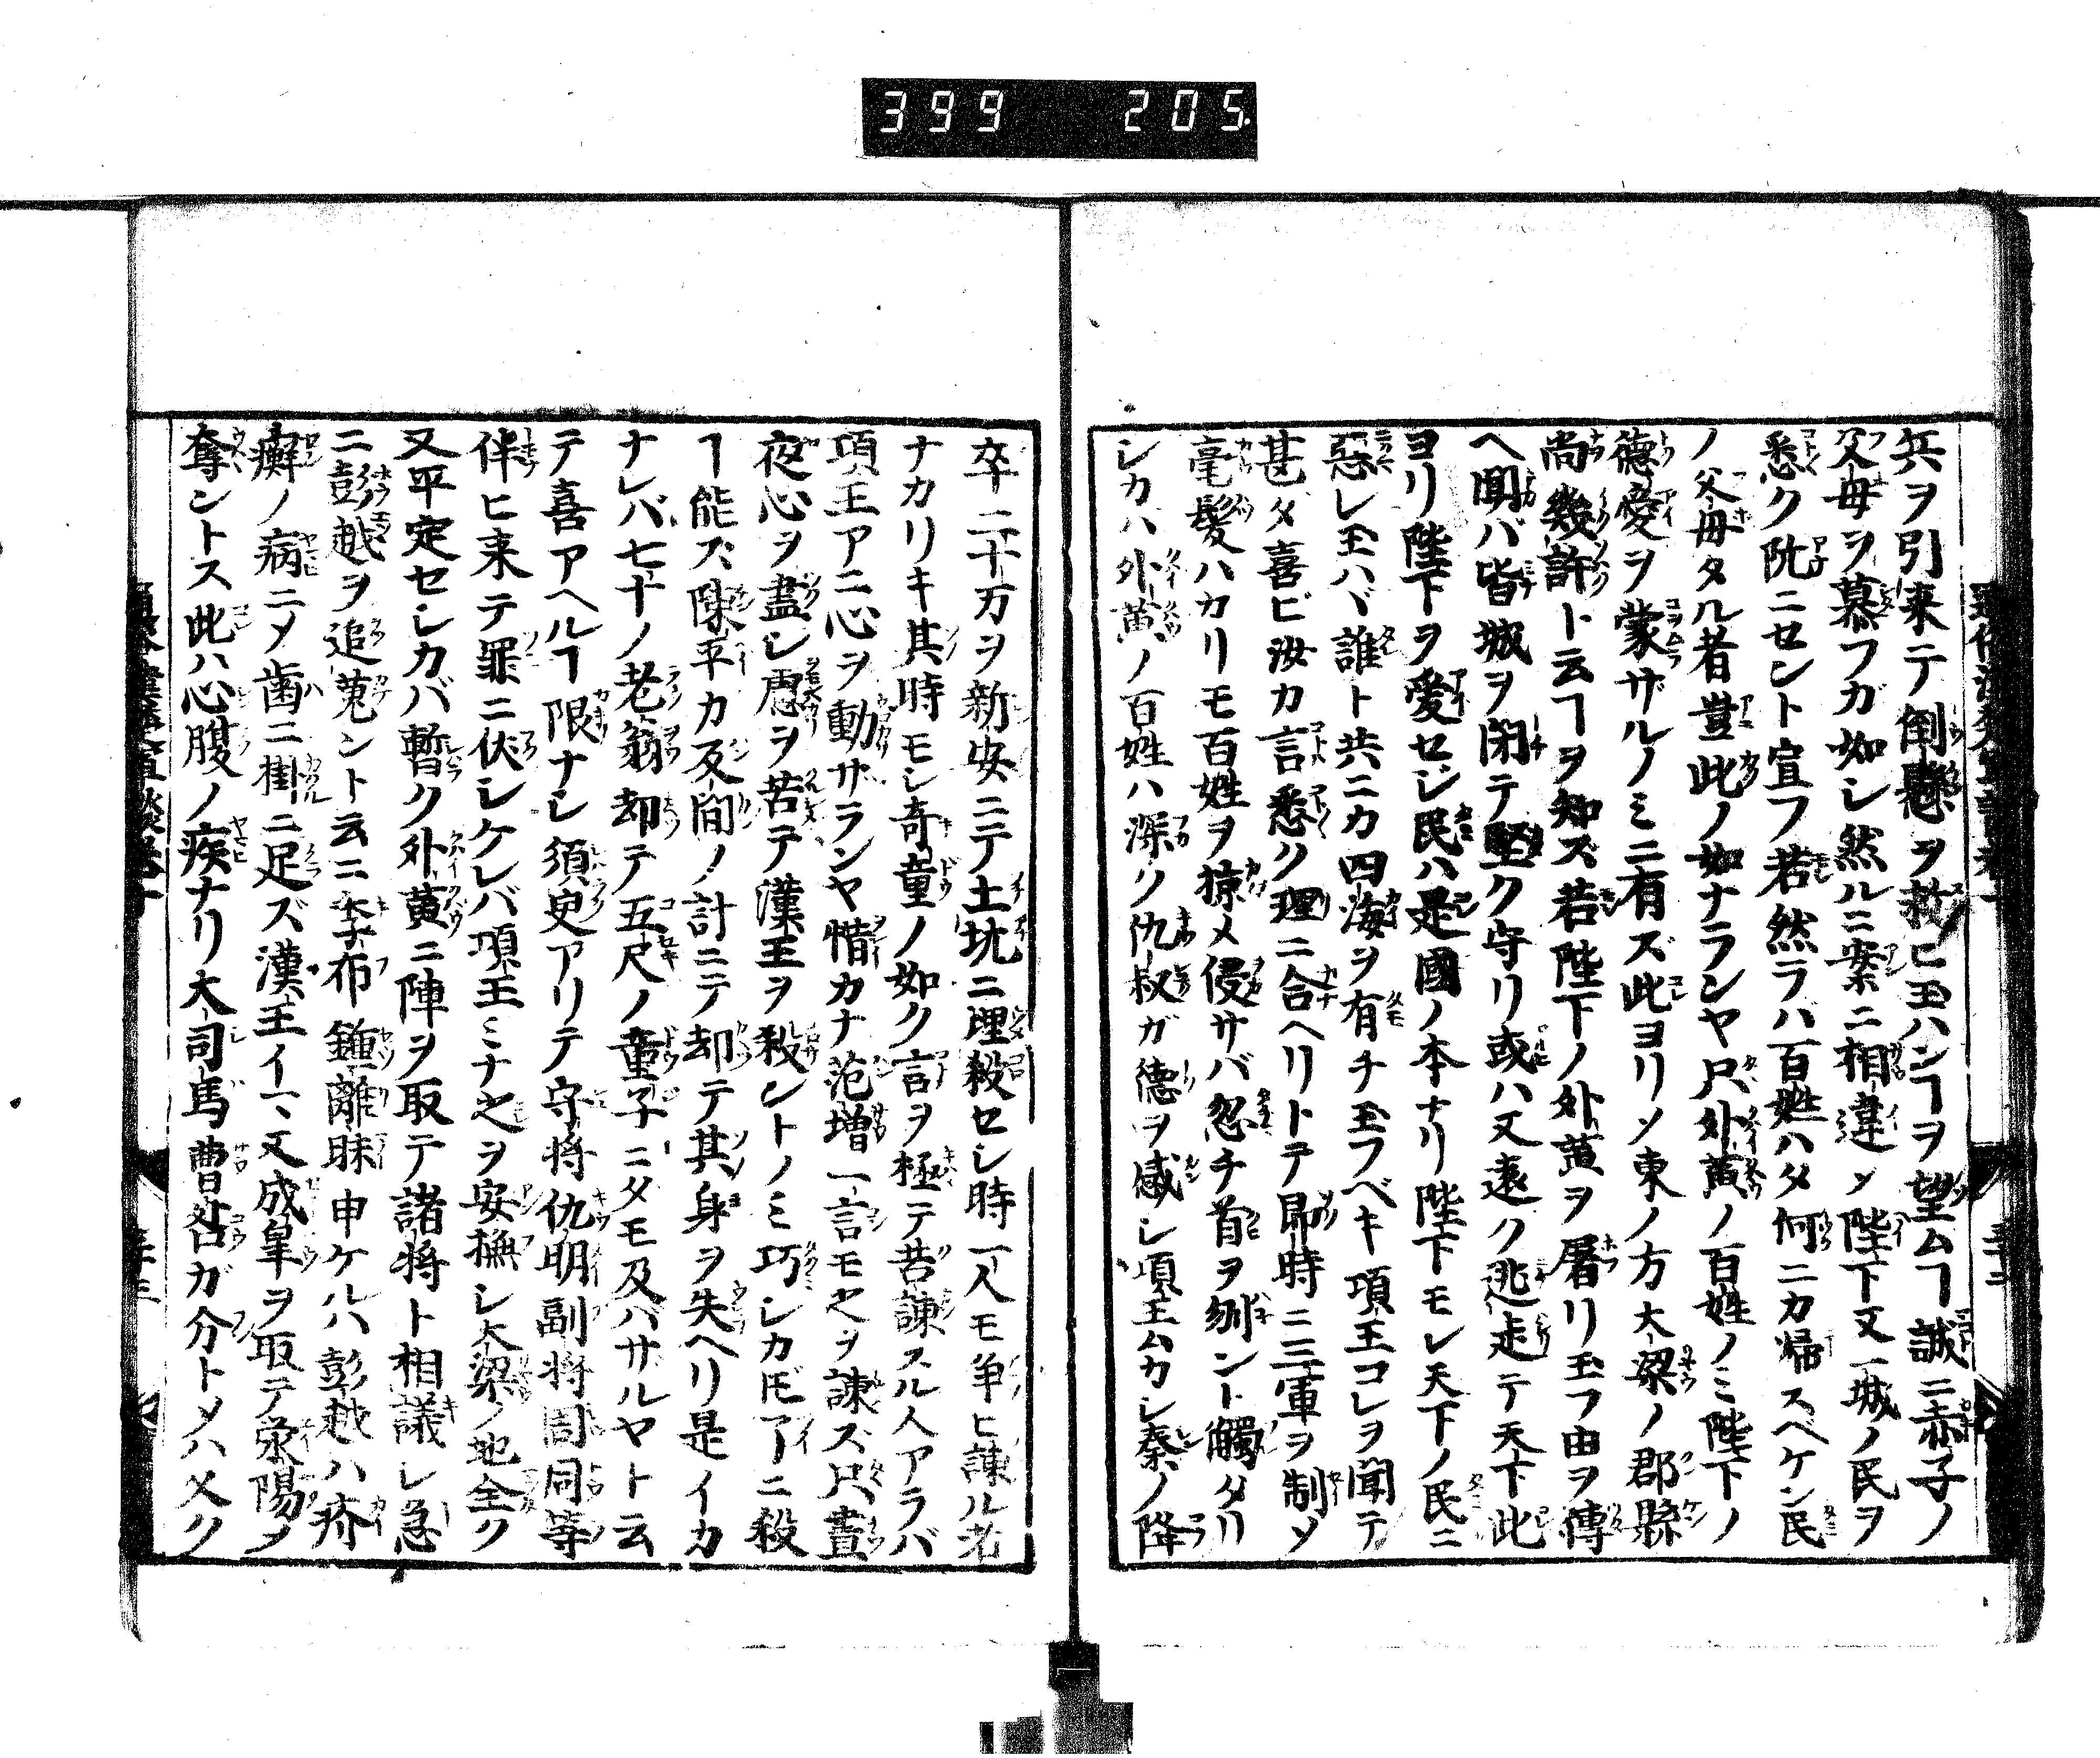 399 205.
兵ヲ引来テ倒懸ヲ救ヒ玉ハンヿヲ望ムヿ誠ニ赤子ノ
父母ヲ慕フガ如シ然ルニ案ニ相違シ陛下又一城ノ民ヲ
悉ク阬ニセント宣フ若然ラハ百姓ハタ何ニカ帰スベケン民
ノ父母タル者豈此ノ如ナランヤ只外黄ノ百姓ノミ陛下ノ
徳愛ヲ蒙ザルノミニ有ズ此ヨリソ東ノ方大梁ノ郡縣
尚幾許ト云ヿヲ知ズ若陛下ノ外黄ヲ屠リ玉フ由ヲ傳
ヘ聞バ皆城ヲ閉テ堅ク守リ或ハ又遠ク逃走テ天下此
ヨリ陛下ヲ愛セジ民ハ是國ノ本ナリ陛下モシ天下ノ民ニ
惡レ玉ハヾ誰ト共ニカ四海ヲ有チ玉フベキ項王コレヲ聞テ
甚タ喜ビ汝カ言悉ク理ニ合ヘリトテ即時ニ三軍ヲ制ソ
毫髪ハカリモ百姓ヲ掠メ侵サバ忽チ首ヲ刎ント觸タリ
シカハ外黄ノ百姓ハ深ク仇叔ガ徳ヲ感シ項王ムカシ秦ノ降
卒二十万ヲ新安ニテ土坑ニ埋殺セシ時一人モ争ヒ諌ル者
ナカリキ其時モシ奇童ノ如ク言ヲ極テ苦諌スル人アラバ
項王アニ心ヲ動サランヤ惜カナ范増一言モ之ヲ諌ズ只晝
夜心ヲ盡シ慮ヲ苦テ漢王ヲ殺ントノミ巧シカ𪜈了ニ殺
ヿ能ズ陳平カ反間ノ計ニテ却テ其身ヲ失ヘリ是イカ
ナレバ七十ノ老翁却テ五尺ノ童子ニタモ及ハサルヤト云
テ喜アヘルヿ限ナシ須臾アリテ守将仇明副将周同等
伴ヒ来テ罪ニ伏シケレバ項王ミナ之ヲ安撫シ大梁ノ地全ク
又平定セシカバ暫ク外黄ニ陣ヲ取テ諸将ト相議シ急
ニ彭越ヲ追蒐ント云ニ季布鍾離昧申ケルハ彭越ハ疥
癬ノ病ニソ歯ニ掛ニ足ズ漢王イマ又成皐ヲ取テ滎陽ヲ
奪ントス此ハ心腹ノ疾ナリ大司馬曹咎ガ分トメハ久ク